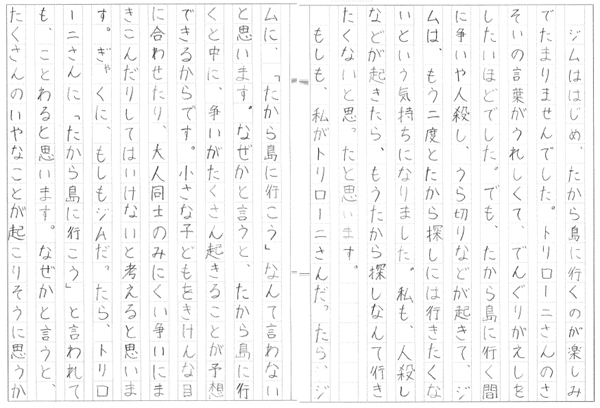 ジムははじめ、たから島に行くのが楽しみ
でたまりませんでした。トリローニさんのさ
そいの言葉がうれしくて、でんぐりがえしを
したいほどでした。でも、たから島に行く間
に争いや人殺し、うら切りなどが起きて、ジ
ムは、もう二度とたから探しには行きたくな
いという気持ちになりました。私も、人殺し
などが起きたら、もうたから探しなんて行き
たくないと思ったと思います。
　もしも、私がトリローニさんだったら、ジ
ムに、「たから島に行こう」なんて言わない
と思います。なぜかと言うと、たから島に行
くと中に、争いがたくさん起きることが予想
できるからです。小さな子どもをきけんな目
に合わせたり、大人同士のみにくい争いにま
きこんだりしてはいけないと考えると思いま
す。ぎゃくに、もしもジムだったら、トリロ
ーニさんに「たから島に行こう」と言われて
も、ことわると思います。なぜかと言うと、
たくさんのいやなことが起こりそうに思うか